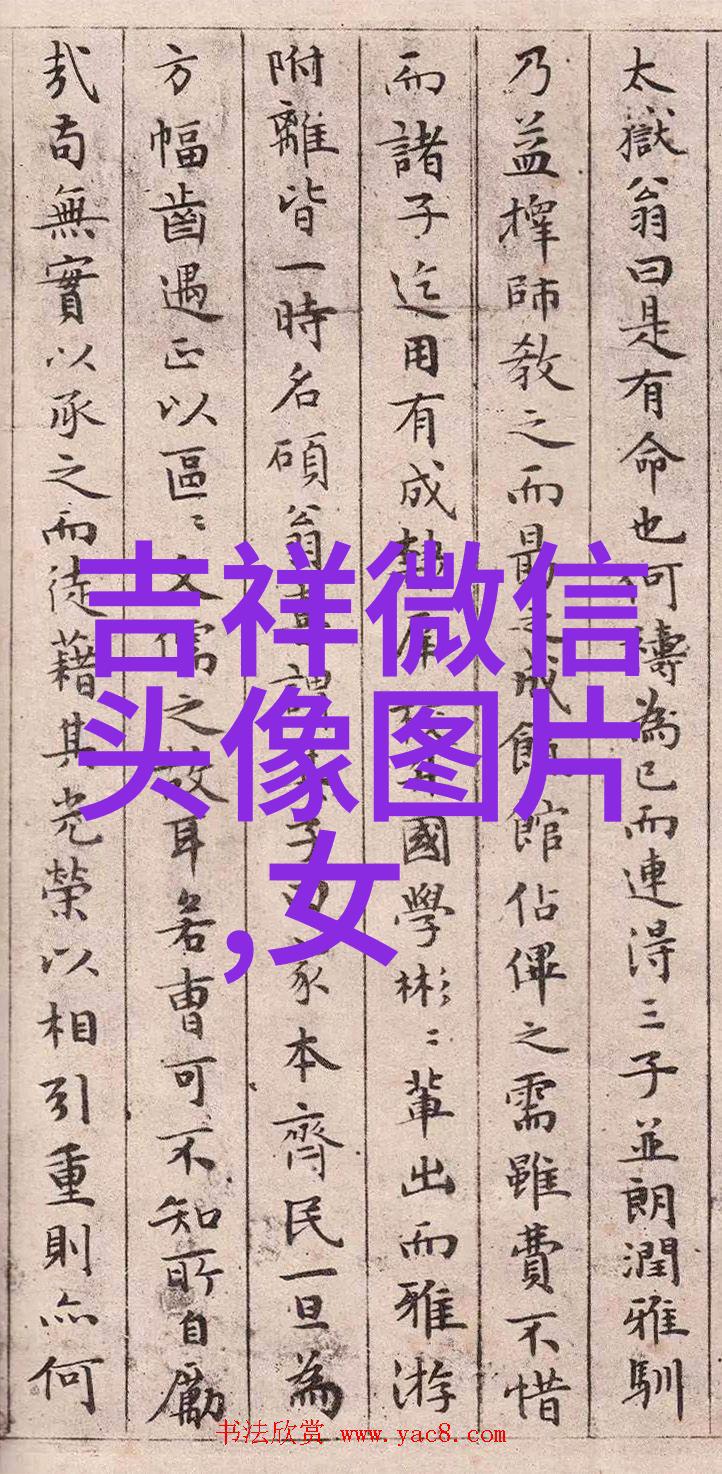 太嶽翁曰是有命也何
為已而連得三子並朗潤雅馴
乃益擇師教之而最之成
館佔僤之需雖費不惜
而諸子迄用有成
國學彬〻軰出而雅游
附離皆一時名碩翁
子曰家本齊民一旦為
方幅齒遇正以區〻文儒之故耳若曹可不知所自勵
哉苟無實以承之而徒藉其光榮以相引重則亦何
吉祥微信
头像图片
,女
书法欣赏 www.yac8.com